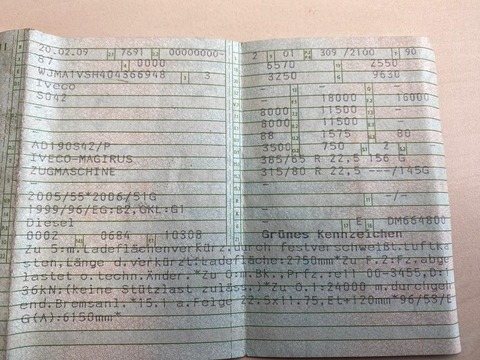 20.02.09 7691 00000000-
87 0000
WJMA1VSH404366948 3
Iveco
S042
AD190S42/P
IVECO-MAGIRUS
ZUGMASCHINE
-
2005/55*2006/51G
1999/96/EG:B2,GKL:G1
Diesel
0002 0684 10308
2 01 309/2100 90
6570 2550
3250 9630
- -
- 18000 16000
- 11500 -
8000 11500 -
8000
88 1575 80
3500 750 2
385/65 R 22.5 156 G
315/80 R 22.5 ---/145G
-
- -/-
- E DM664800
Grünes Kennzeichen
Zu 5:m.Ladeflächenverkürz.durch festverschweißt.Luftka
sten,Länge d.verkürzt.Ladefläche:2750mm*Zu F.2:Fz.abge
lastet o.techn.Änder.*Zu O:m.Bk.,Prfz.:e11 00-3455,D:1
36kN:(keine Stützlast zuläss.)*Zu O.1:24000 m.durchgeh
end.Bremsanl.*15.1 a.Felge 22.5x11.75,Et+120mm*96/53/E
G(A):6150mm*